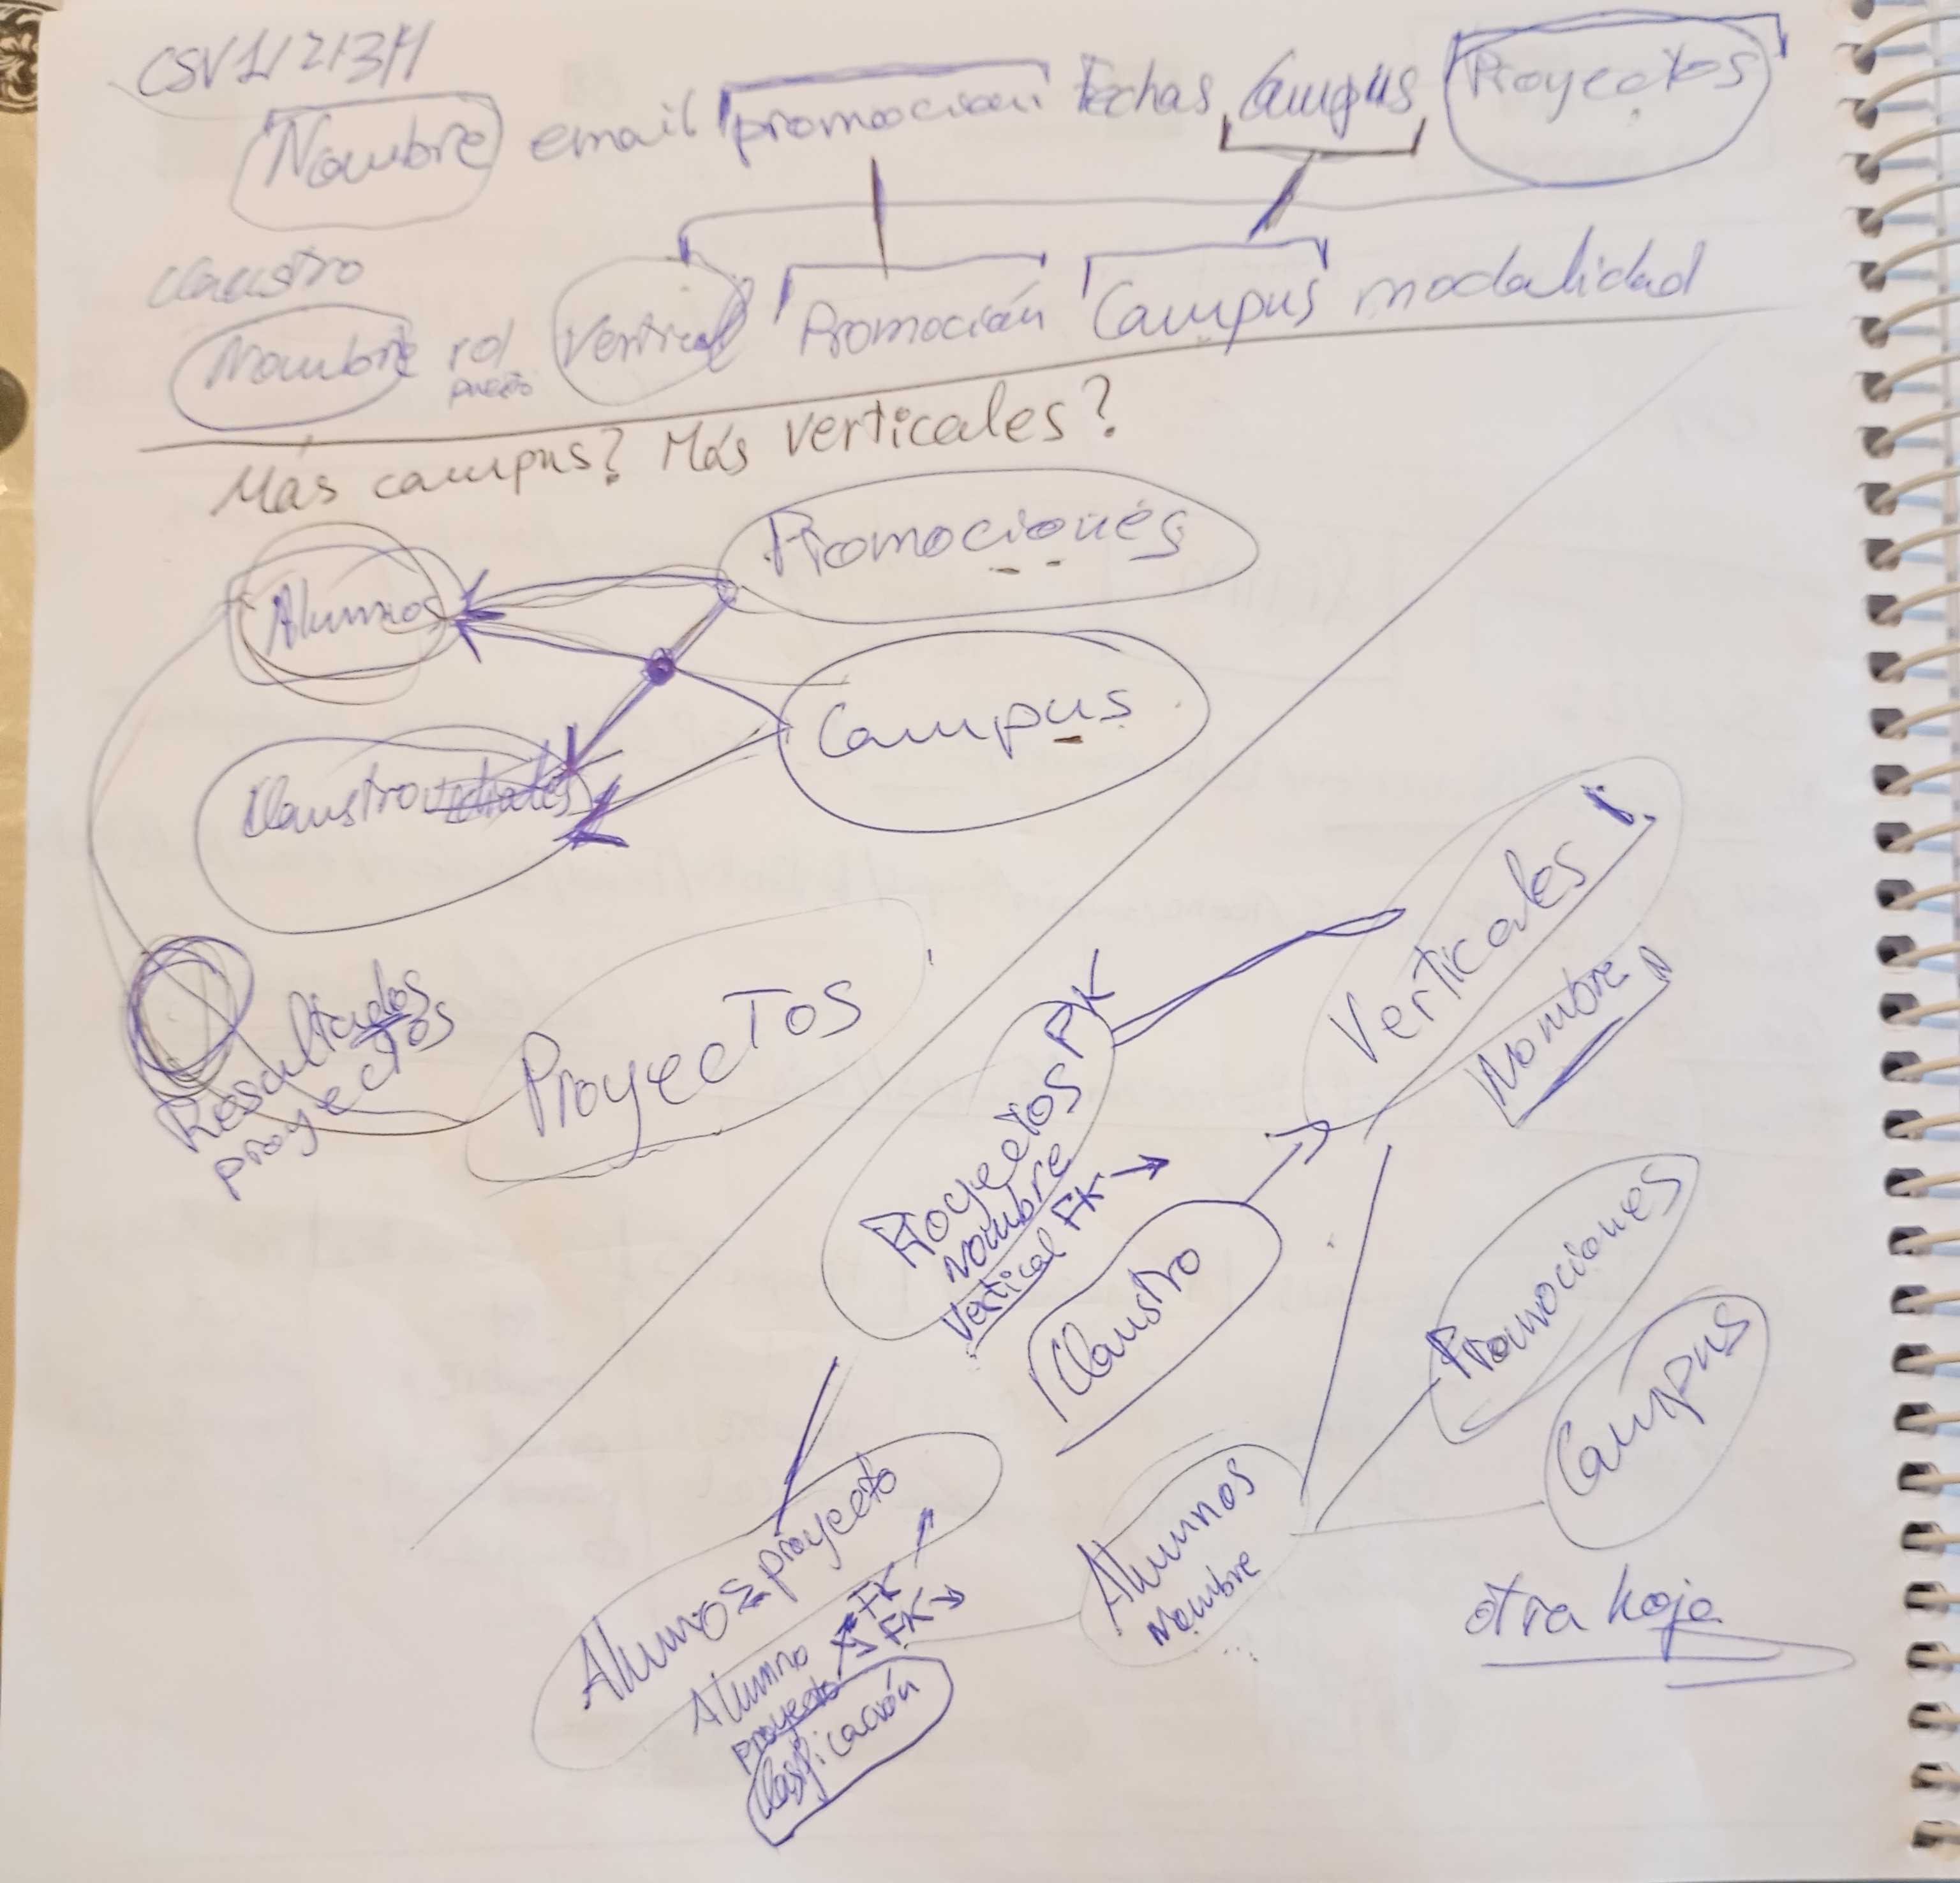 CSV 1/2/3/4
Nombre email promoción Fechas Campus Proyectos
claustro
Nombre rol Vertical Promoción Campus modalidad
puesto
Más campus? Más verticales?
Promociones
Alumnos
Campus
Claustro
Verticales
Nombre
Resultados
proyectos
Proyectos
Proyectos PK
Nombre
Vertical FK →
Claustro
Promociones
Campus
Alumnos proyecto
Alumno FK
proyecto FK →
Alumnos
Nombre
otra hoja